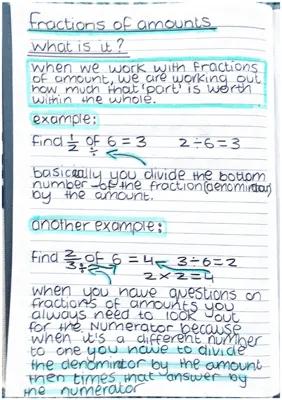 fractions of amounts
what is it?
when we work with fractions
of amount, we are working out
how much that 'part' is worth
within the whole.
example:
find 1/2 of 6 = 3 2÷6=3
÷
basically you divide the bottom
number of the fraction (denominator)
by the amount.
another example:
find 2/3 of 6 = 4 3÷6=2
÷
2×2=4
when you have questions on
fractions of amounts you
always need to look out
for the numerator because
when it's a different number
to one you have to divide
the denominator by the amount
then times that answer by
the numerator